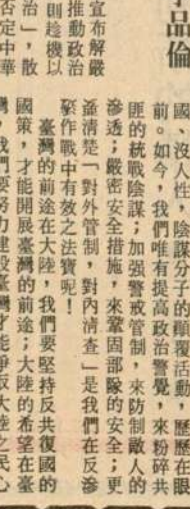 品倫
國、沒人性,陰謀分子的顛覆活動,歷歷在眼
前。如今,我們唯有提高政治警覺,來粉碎共
匪的統戰陰謀;加强警戒管制,來防制敵人的
滲透;嚴密安全措施,來鞏固部隊的安全;更
須清楚「對外管制,對內清查」是我們在反滲
作戰中有效之法寶呢!
臺灣的前途在大陸,我們要堅持反共復國的
國策,才能開展臺灣的前途;大陸的希望在臺
灣,我們要努力建設臺灣才能爭取大陸之民心
宣布解嚴
推動政治
則趁機以
治」,散
否定中華